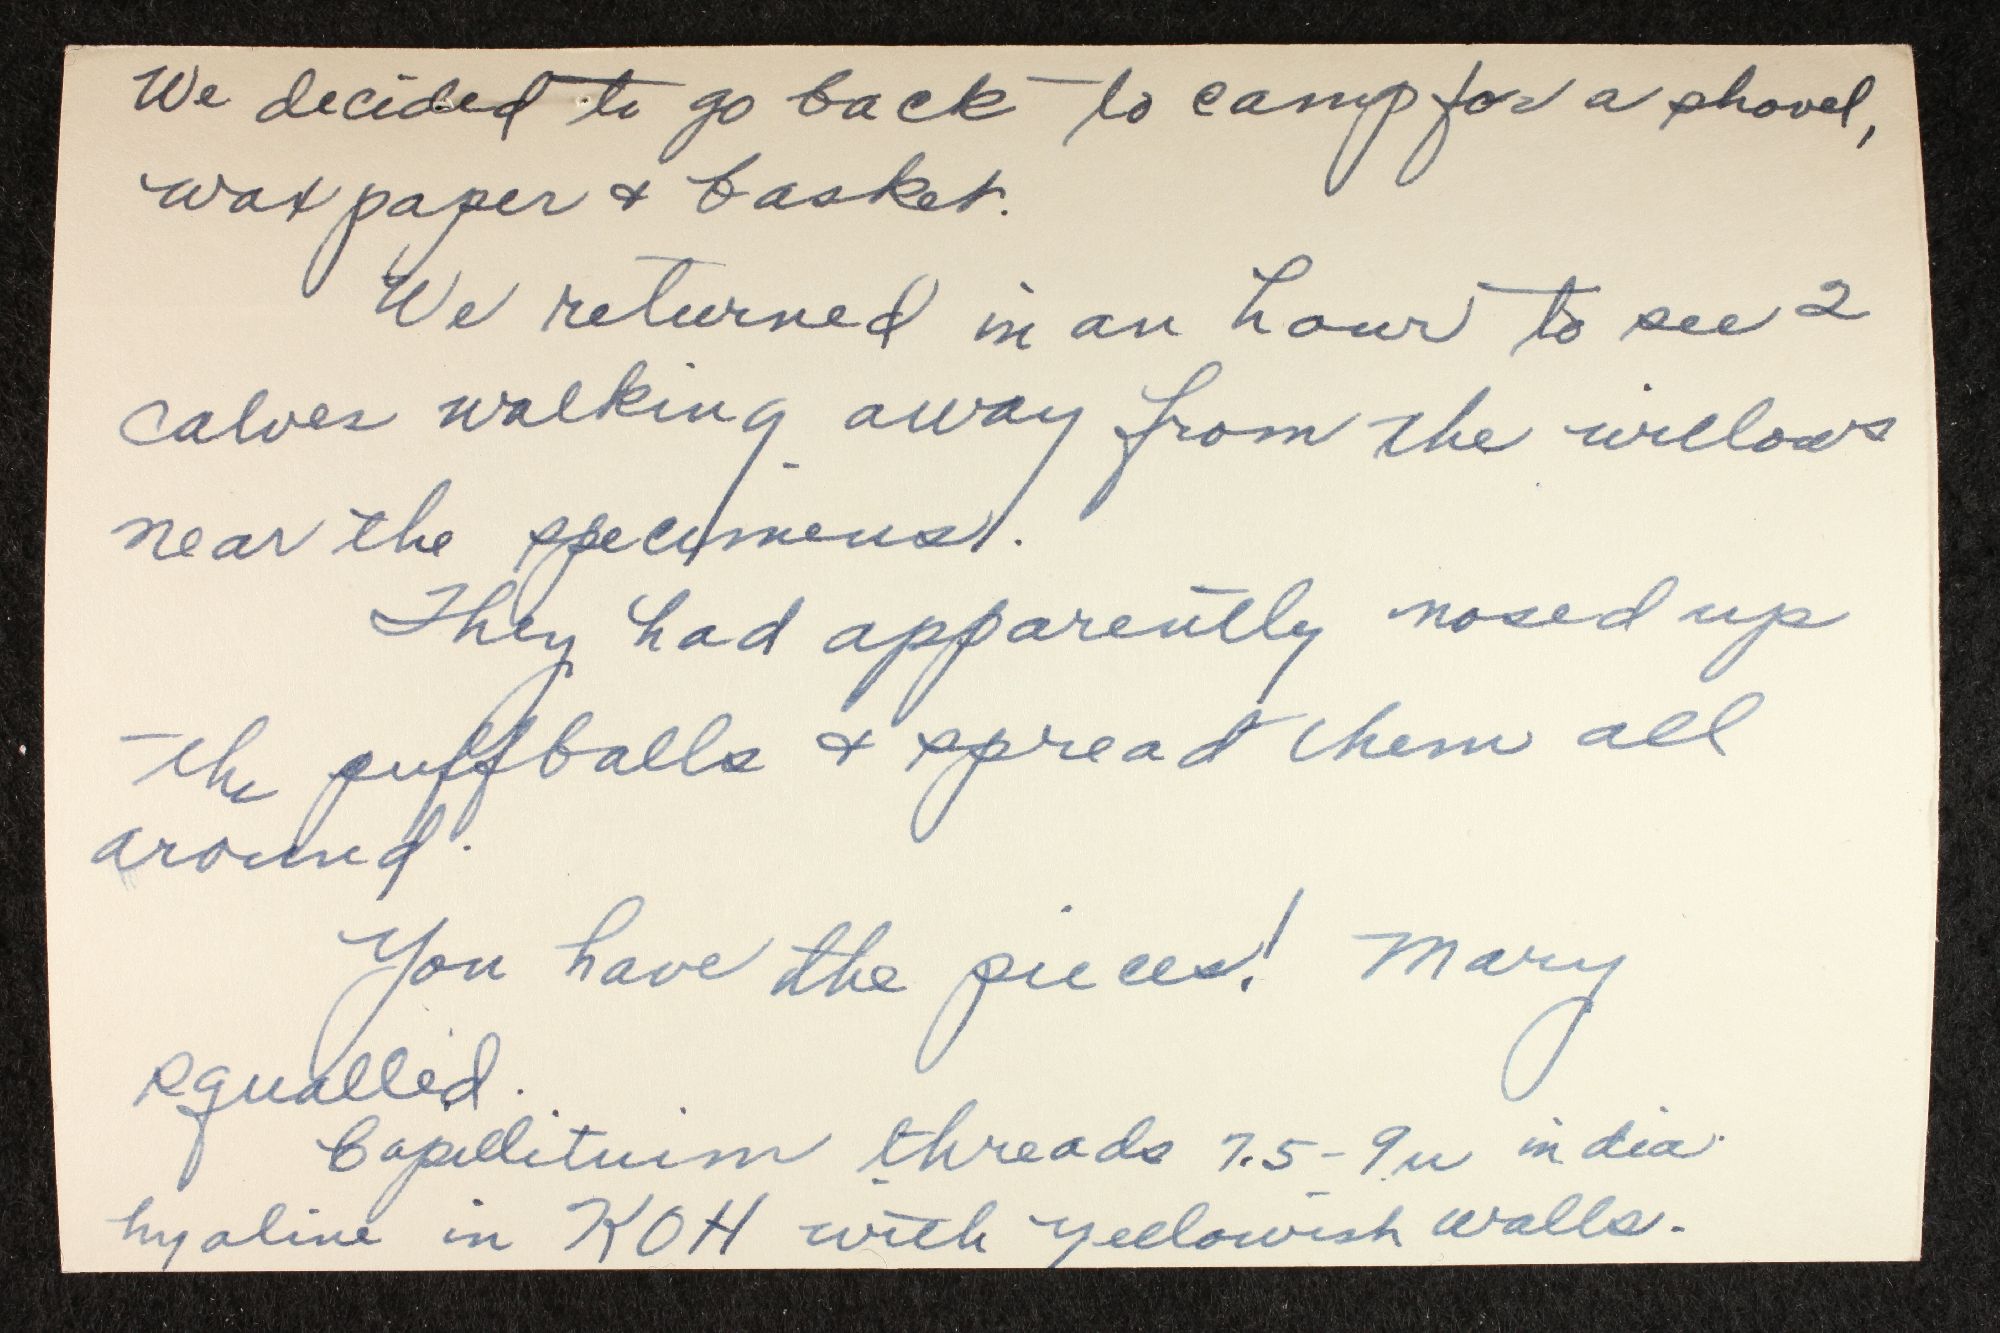 We decided to go back to camp for a shovel,
wax paper & basket.
We returned in an hour to see 2
calves walking away from the willows
near the specimens.
They had apparently nosed up
the puffballs & spread them all
around.
You have the pieces! Mary
squalled.
Capillitium threads 7.5-9u in dia.
hyaline in KOH with yellowish walls.